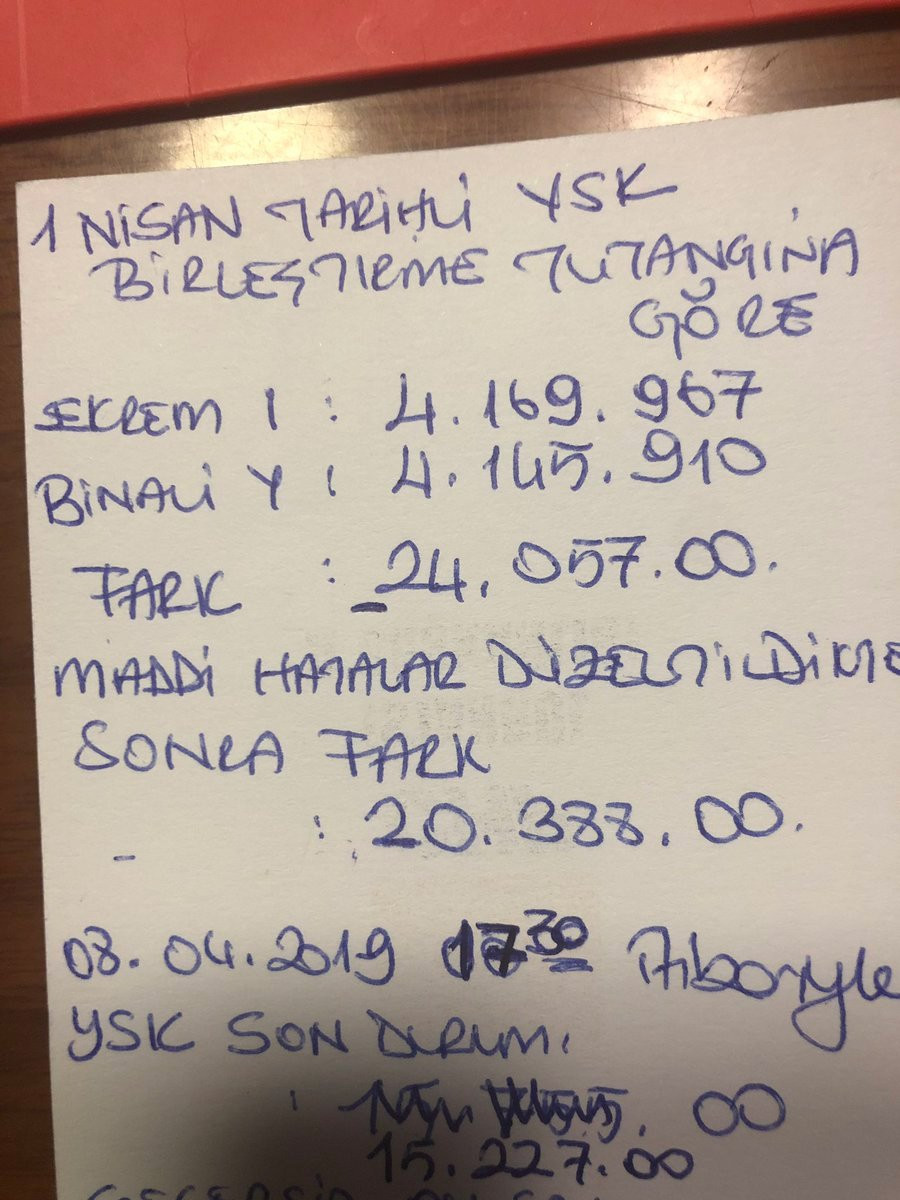 1 NİSAN TARİHLİ YSK
BİRLEŞTİRME TUTANGINA
GÖRE
EKREM I : 4.169.967
BİNALİ Y : 4.145.910
FARK : 24.057.00.
MADDİ HATALAR DÜZELTİLDİKTE
SONRA FARK
: 20.388.00.
08.04.2019 17 30 İtibariyle
YSK SON DURUM:
: 00
15.227.00